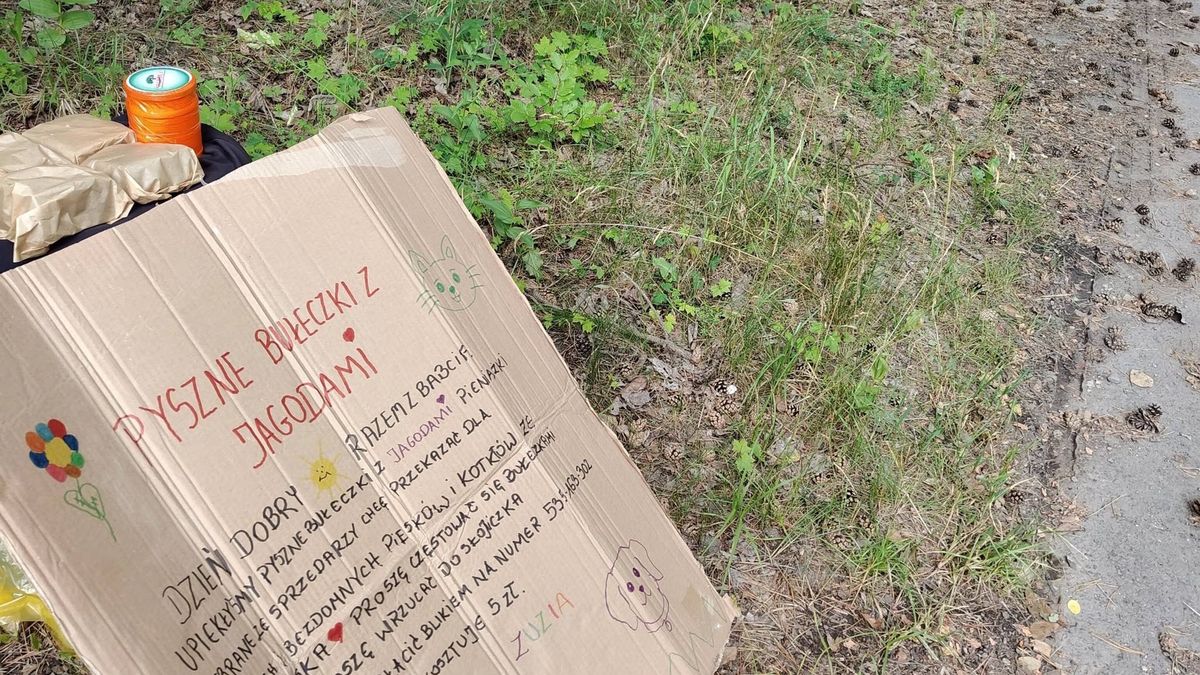 PYSZNE BUŁECZKI Z
JAGODAMI
DZIEŃ DOBRY RAZEM Z BABCIĄ
UPIEKŁYŚMY PYSZNE BUŁECZKI Z JAGODAMI PIENIĄŻKI
ZE SPRZEDARZY CHCĘ PRZEKAZAĆ DLA
BEZDOMNYCH PIESKÓW I KOTKÓW ZE
PROSZĘ CZĘSTOWAĆ SIĘ BUŁECZKAMI
WRZUCAĆ DO SŁOICZKA
BLIKIEM NA NUMER
5 ZŁ.
ZUZIA